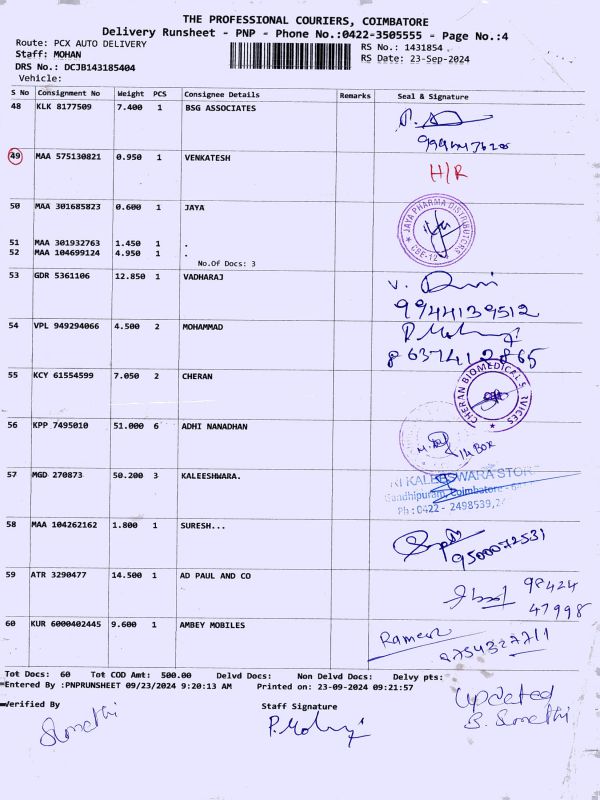 THE PROFESSIONAL COURIERS, COIMBATORE
Delivery Runsheet - PNP - Phone No.:0422-3505555 - Page No.:4
Route: PCX AUTO DELIVERY
RS No.: 1431854
Staff: MOHAN
RS Date: 23-Sep-2024
DRS No.: DCJB143185404
Vehicle:
S No Consignment No Weight PCS Consignee Details Remarks Seal & Signature
48 KLK 8177509 7.400 1 BSG ASSOCIATES
49 MAA 575130821 0.950 1 VENKATESH
H/R
50 MAA 301685823 0.600 1 JAYA
JAYA PHARMA DISTRIBUTORS
CBE-12
51 MAA 301932763 1.450 1 .
52 MAA 104699124 4.950 1 .
No.Of Docs: 3
53 GDR 5361106 12.850 1 VADHARAJ
9944139512
54 VPL 949294066 4.500 2 MOHAMMAD
8637412865
55 KCY 61554599 7.050 2 CHERAN
CHERAN BIOMEDICAL S RVICES
56 KPP 7495010 51.000 6 ADHI NANADHAN
14 BOX
57 MGD 270873 50.200 3 KALEESHWARA.
RI KALEESWARA STOR
Gandhipuram, Coimbatore - 64
Ph : 0422 - 2498539, 24
58 MAA 104262162 1.800 1 SURESH...
9500072531
59 ATR 3290477 14.500 1 AD PAUL AND CO
98424
47998
60 KUR 6000402445 9.600 1 AMBEY MOBILES
Ramesh
9754327711
Tot Docs: 60 Tot COD Amt: 500.00 Delvd Docs: Non Delvd Docs: Delvy pts:
Entered By :PNPRUNSHEET 09/23/2024 9:20:13 AM Printed on: 23-09-2024 09:21:57
Verified By
Staff Signature
Updated
P. Mohan